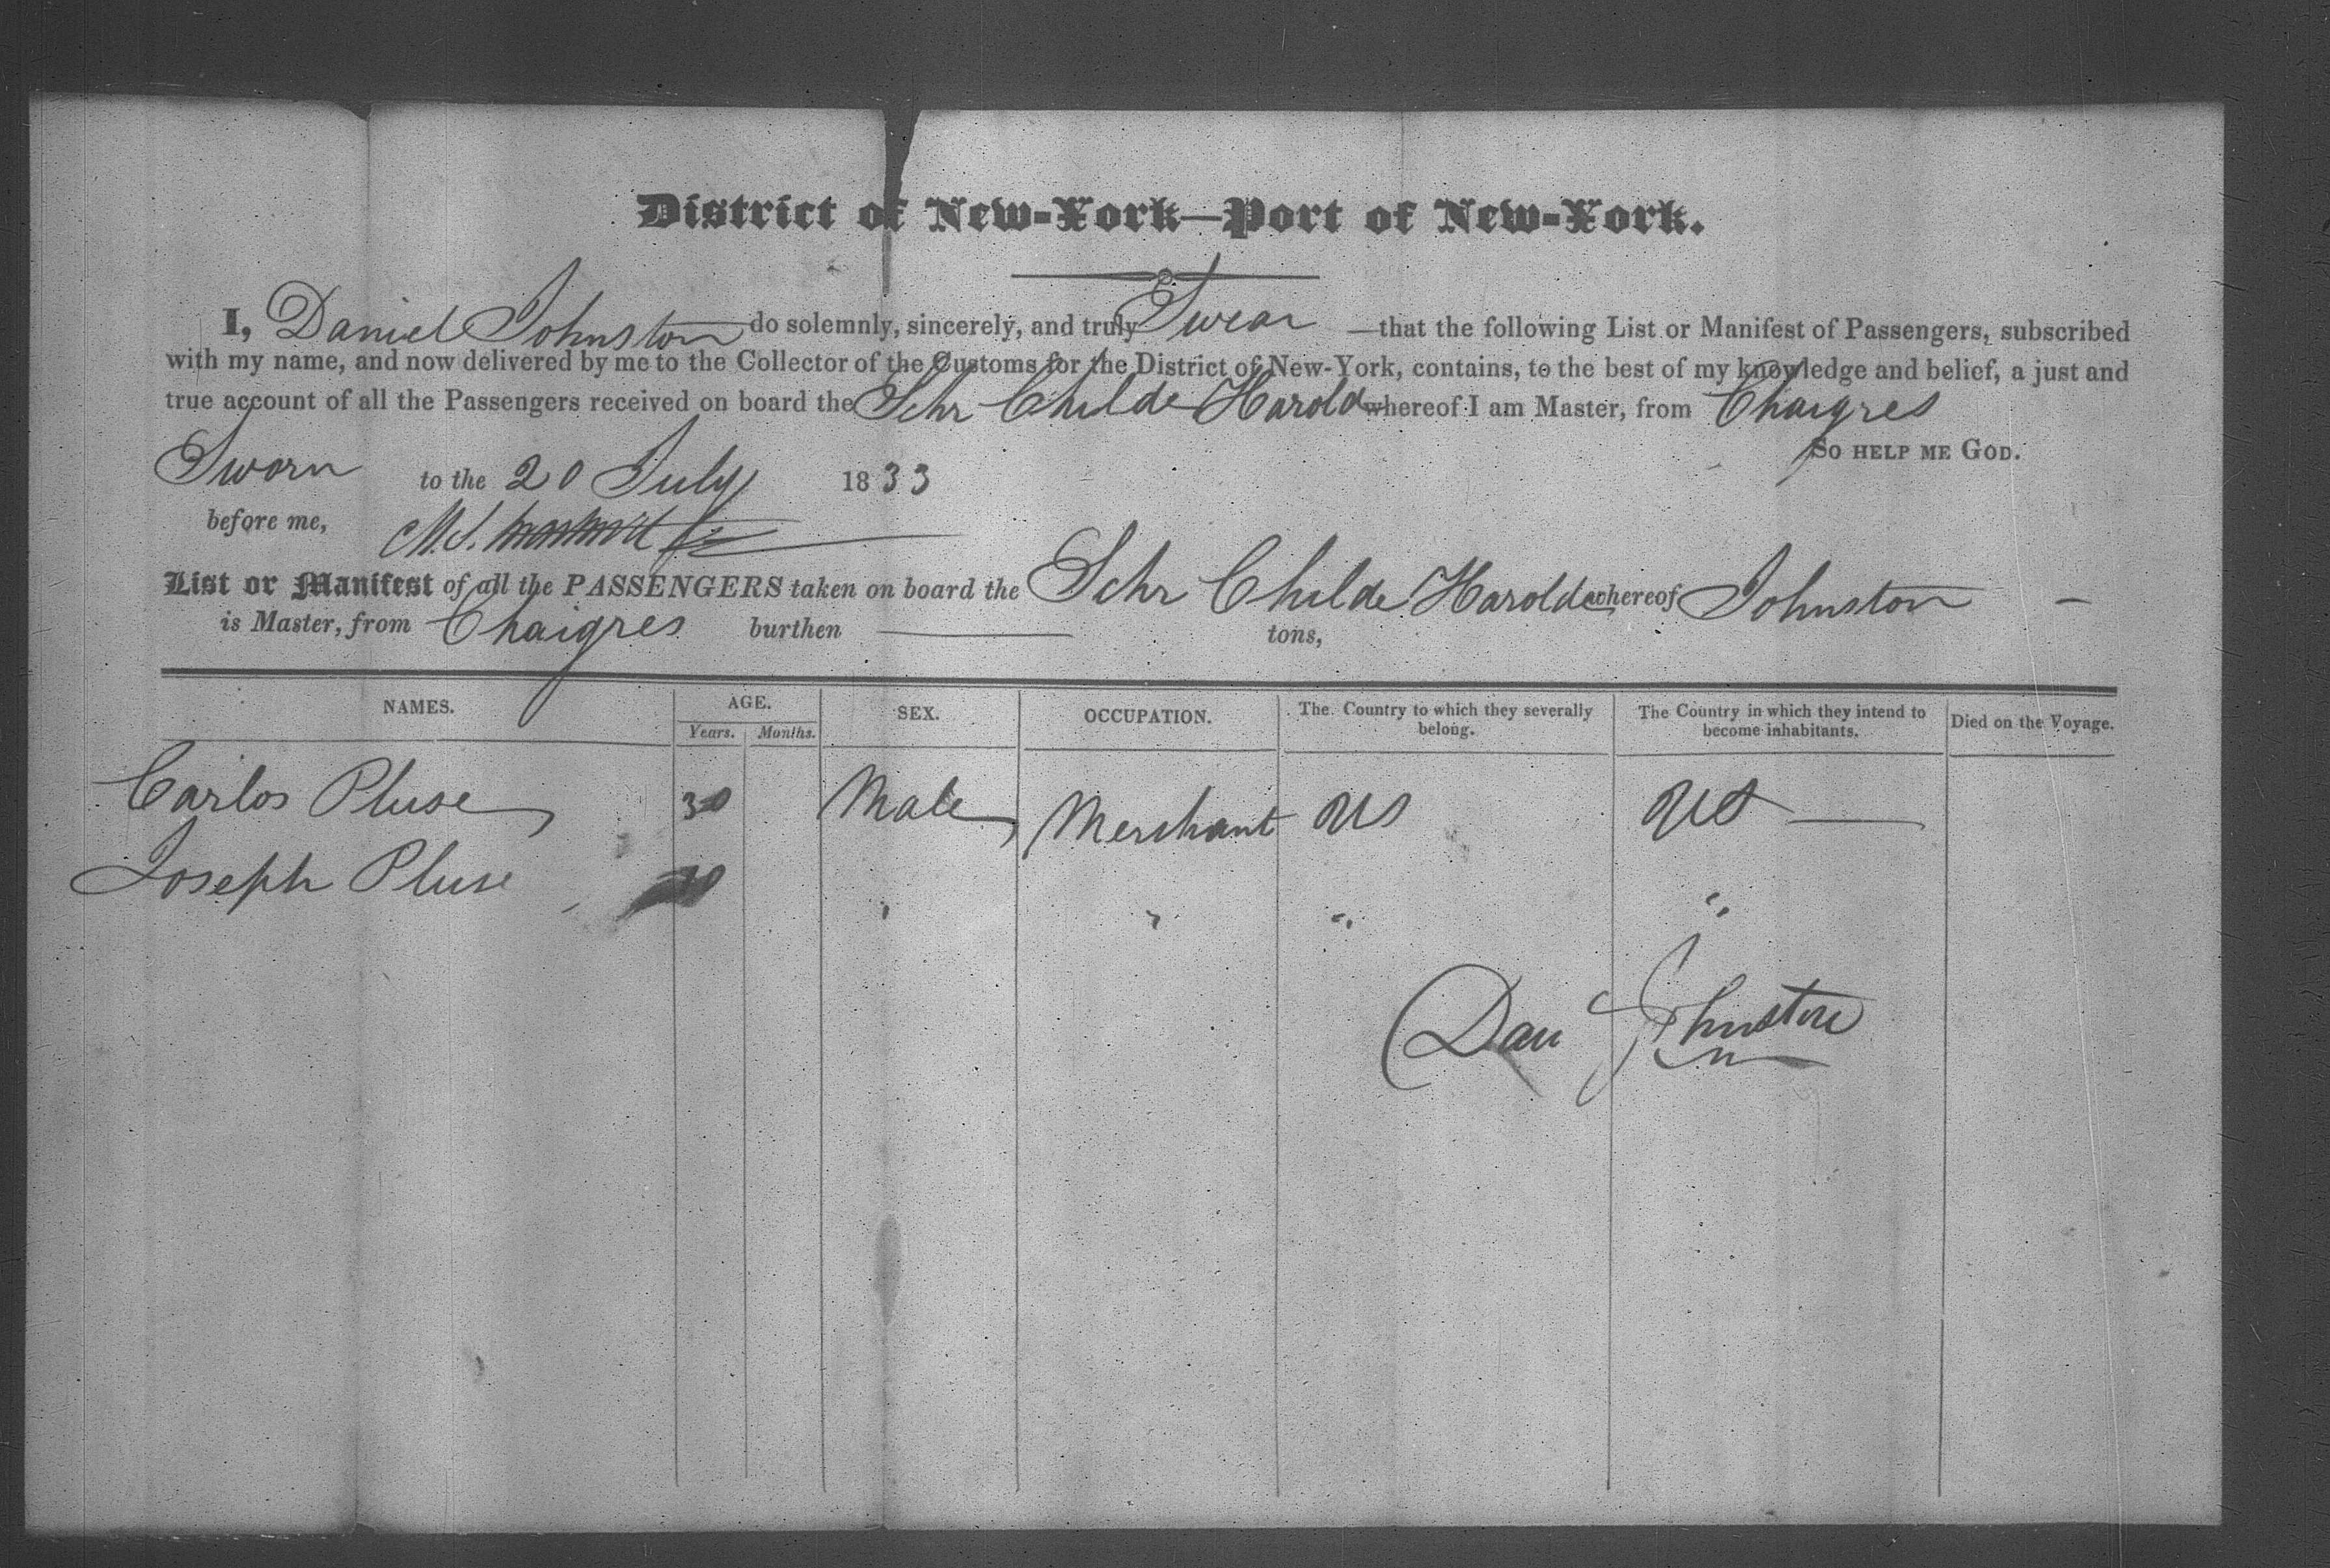 District of New-York—Port of New-York.
I, Daniel Johnston do solemnly, sincerely, and truly Swear —that the following List or Manifest of Passengers, subscribed
with my name, and now delivered by me to the Collector of the Customs for the District of New-York, contains, to the best of my knowledge and belief, a just and
true account of all the Passengers received on board the Schr Childe Harold whereof I am Master, from Chaigres
So help me God.
Sworn to the 20 July 1833
before me, M.S.
List or Manifest of all the PASSENGERS taken on board the Schr Childe Harolde whereof Johnston —
is Master, from Chaigres burthen —— tons,
NAMES. AGE. SEX. OCCUPATION. The Country to which they severally belong. The Country in which they intend to become inhabitants. Died on the Voyage.
Years. Months.
Carlos Pluse 30 Male Merchant US US ——
Joseph Pluse " " " "
Dan Johnston